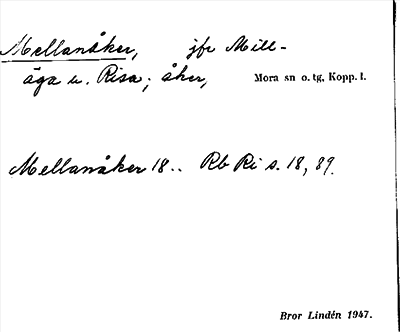 Mellanåker, jfr Mill-
äga u. Risa; åker, Mora sn o. tg, Kopp. l.
Mellanåker 18.. Rb Ri s. 18, 89.
Bror Lindén 1947.